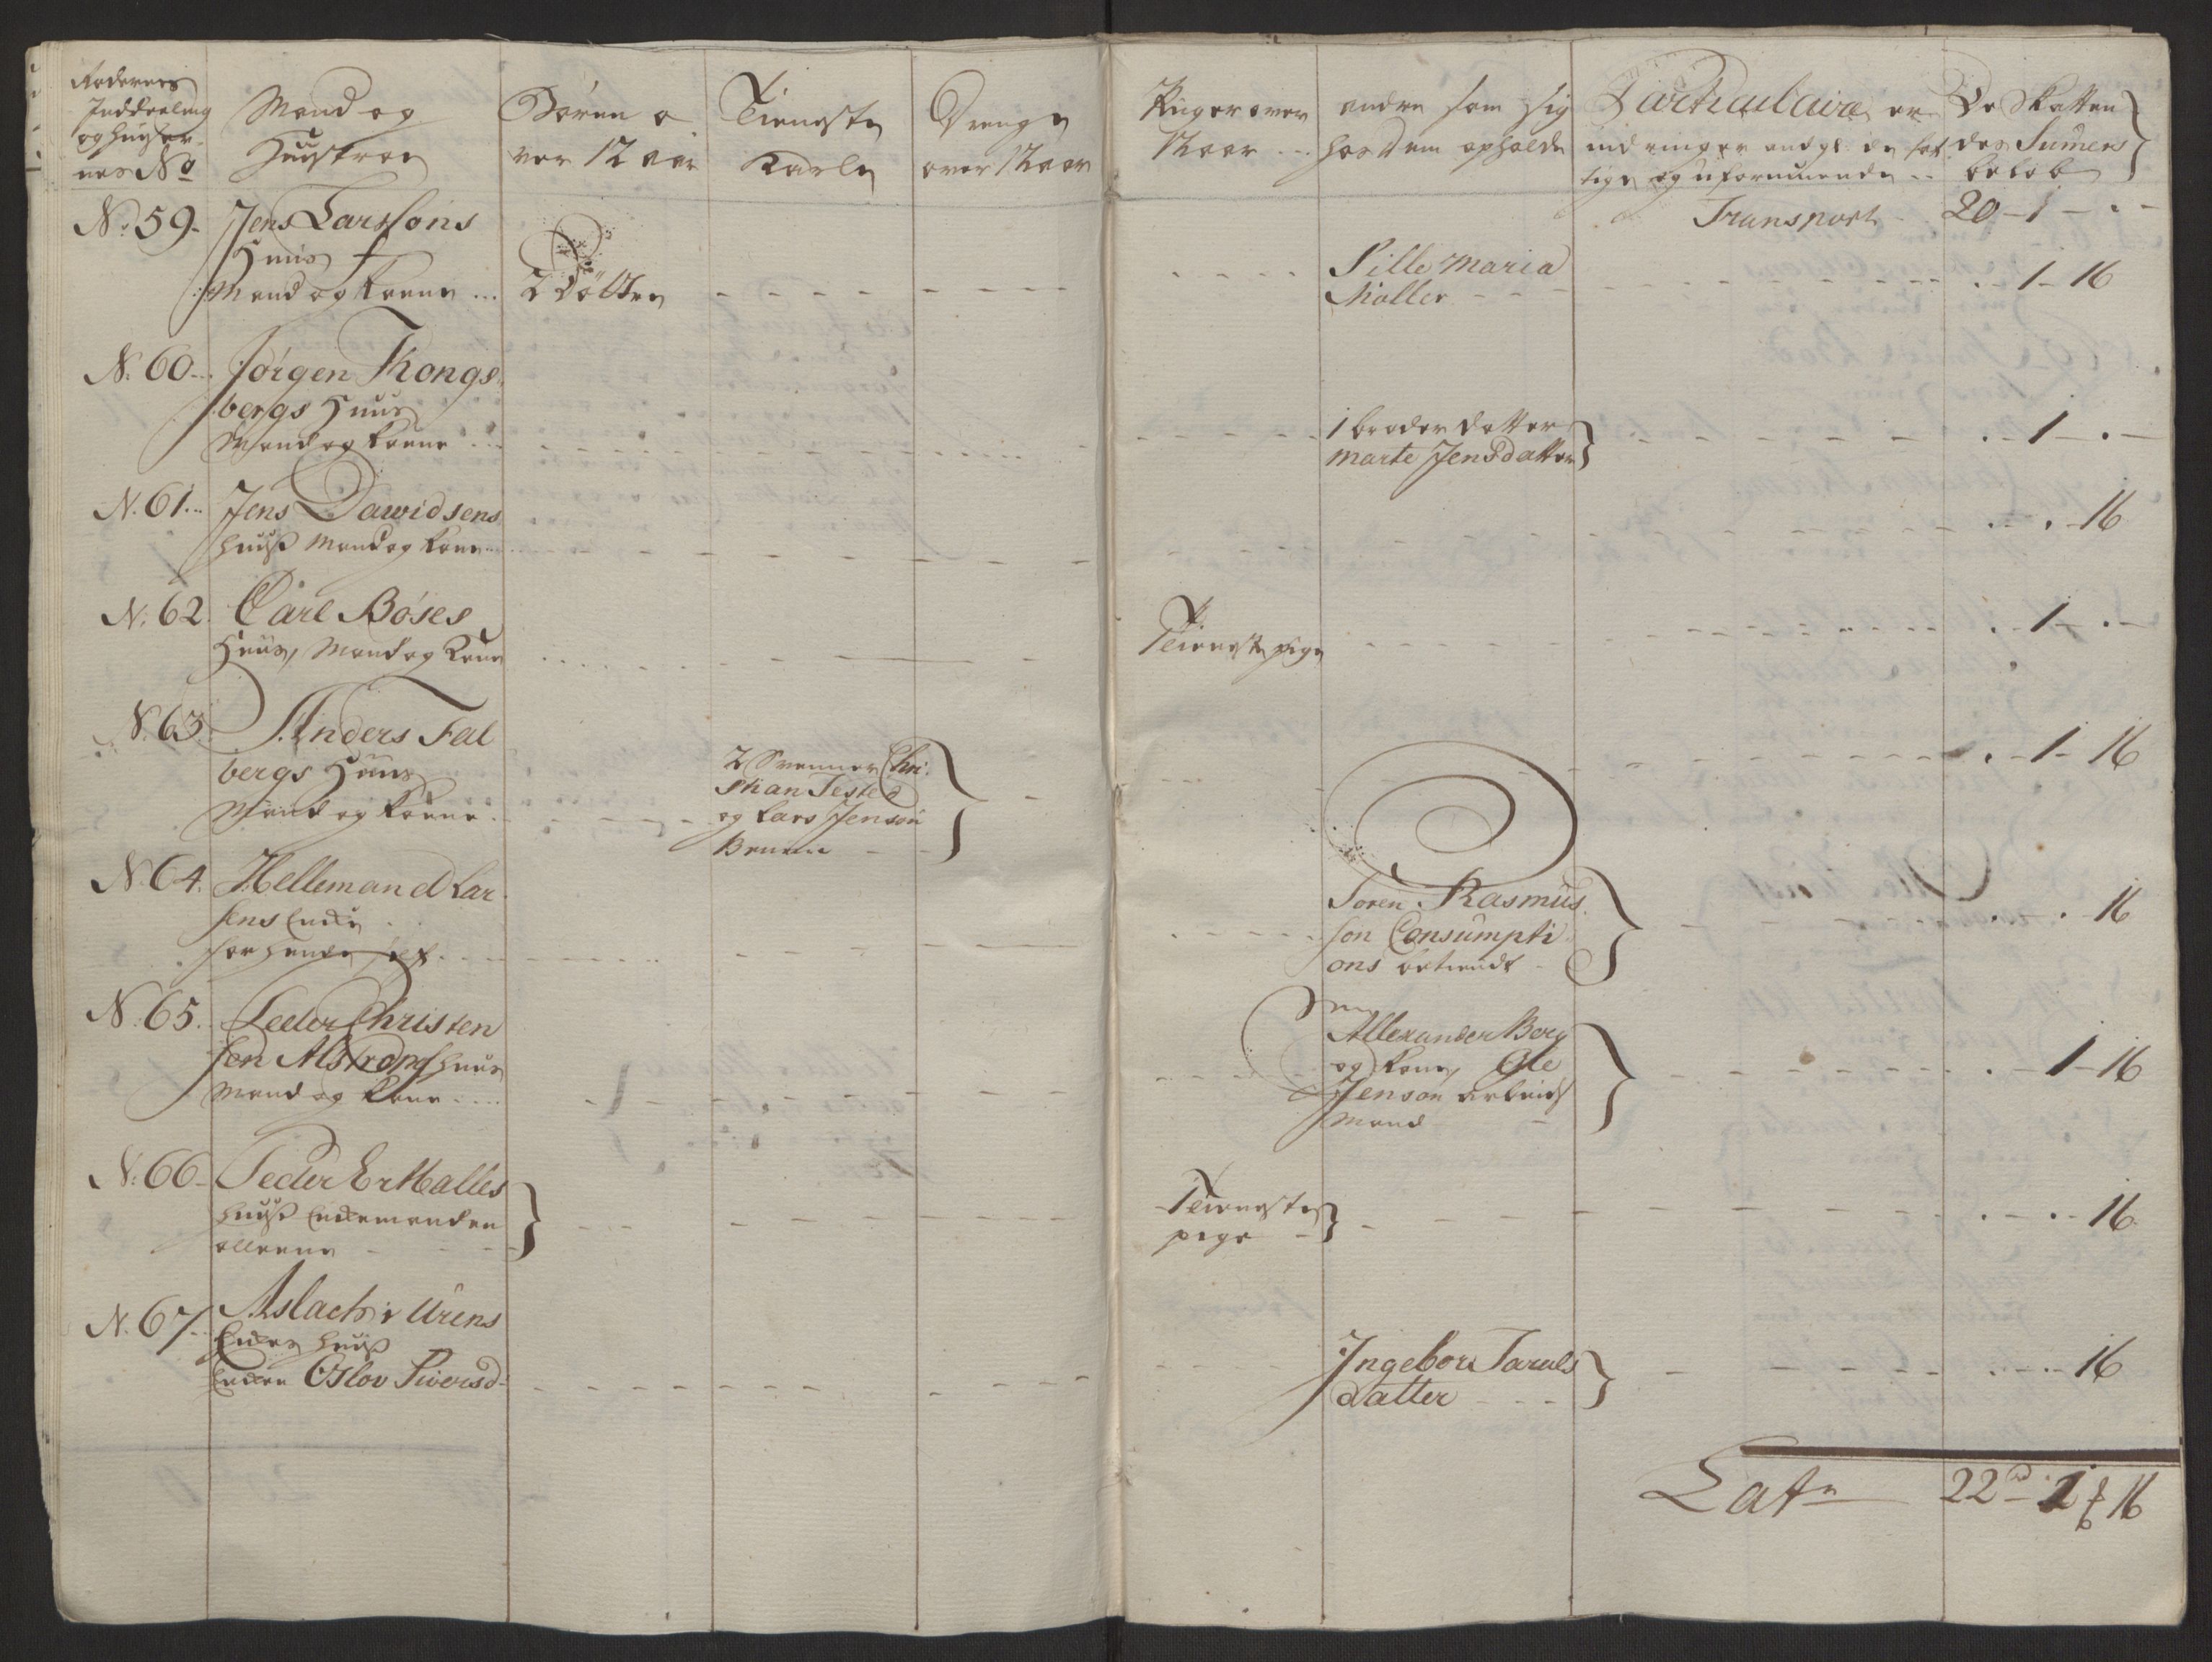 Rodernes
Inddeeling
og huuser-
nes No
Mand og
Huustroe
Børen o
ver 12 aar
Tieneste
Karle
Drenge
over 12 aar
Piiger over
12 aar
andre som sig
hos dem opholde
Particulaire er
inderinger andgl. de fat
tige og uformuende
De Skatten
des Sumers
beløb
Transport 20 - 1 - -
No 59. Jens Larssøns
Huus
Mand og Kone
2 Døttre
Sille Maria
Møller
1 - 16
N. 60. Jørgen Kongs
bergs Huus
Mand og Kone
1 broder datter
Marte Jensdatter
1 -
N. 61. Jens Dawidsens
Huuß Mand og Kone
16
N. 62. Carl Böses
Huus, Mand og Kone
1 Tieneste pige
1 -
N. 63. Anders Fal
bergs Huus
Mand og Kone
2 Svenner Chri
stian Tested
og Lars Jenson
Bruun
1 - 16
N. 64. Hellemand Lar
sens Enke
for hende self
Soren Rasmus
son Consumpti
ons betiendt
16
N. 65. Peder Christen
sen Alstrops huus
Mand og Kone
Allexander Berg
og Kone, Ole
Jenson arbeids
mand
1 - 16
N. 66. Peder Er Malles
Huuß Enkemanden
alleene
1 Tieneste
pige
16
N. 67. Aslach i Urens
Enkes huuß
Enken Oslov Siversd
Ingebor Tarals
datter
16
Late 22 rd 1 ƒ 16